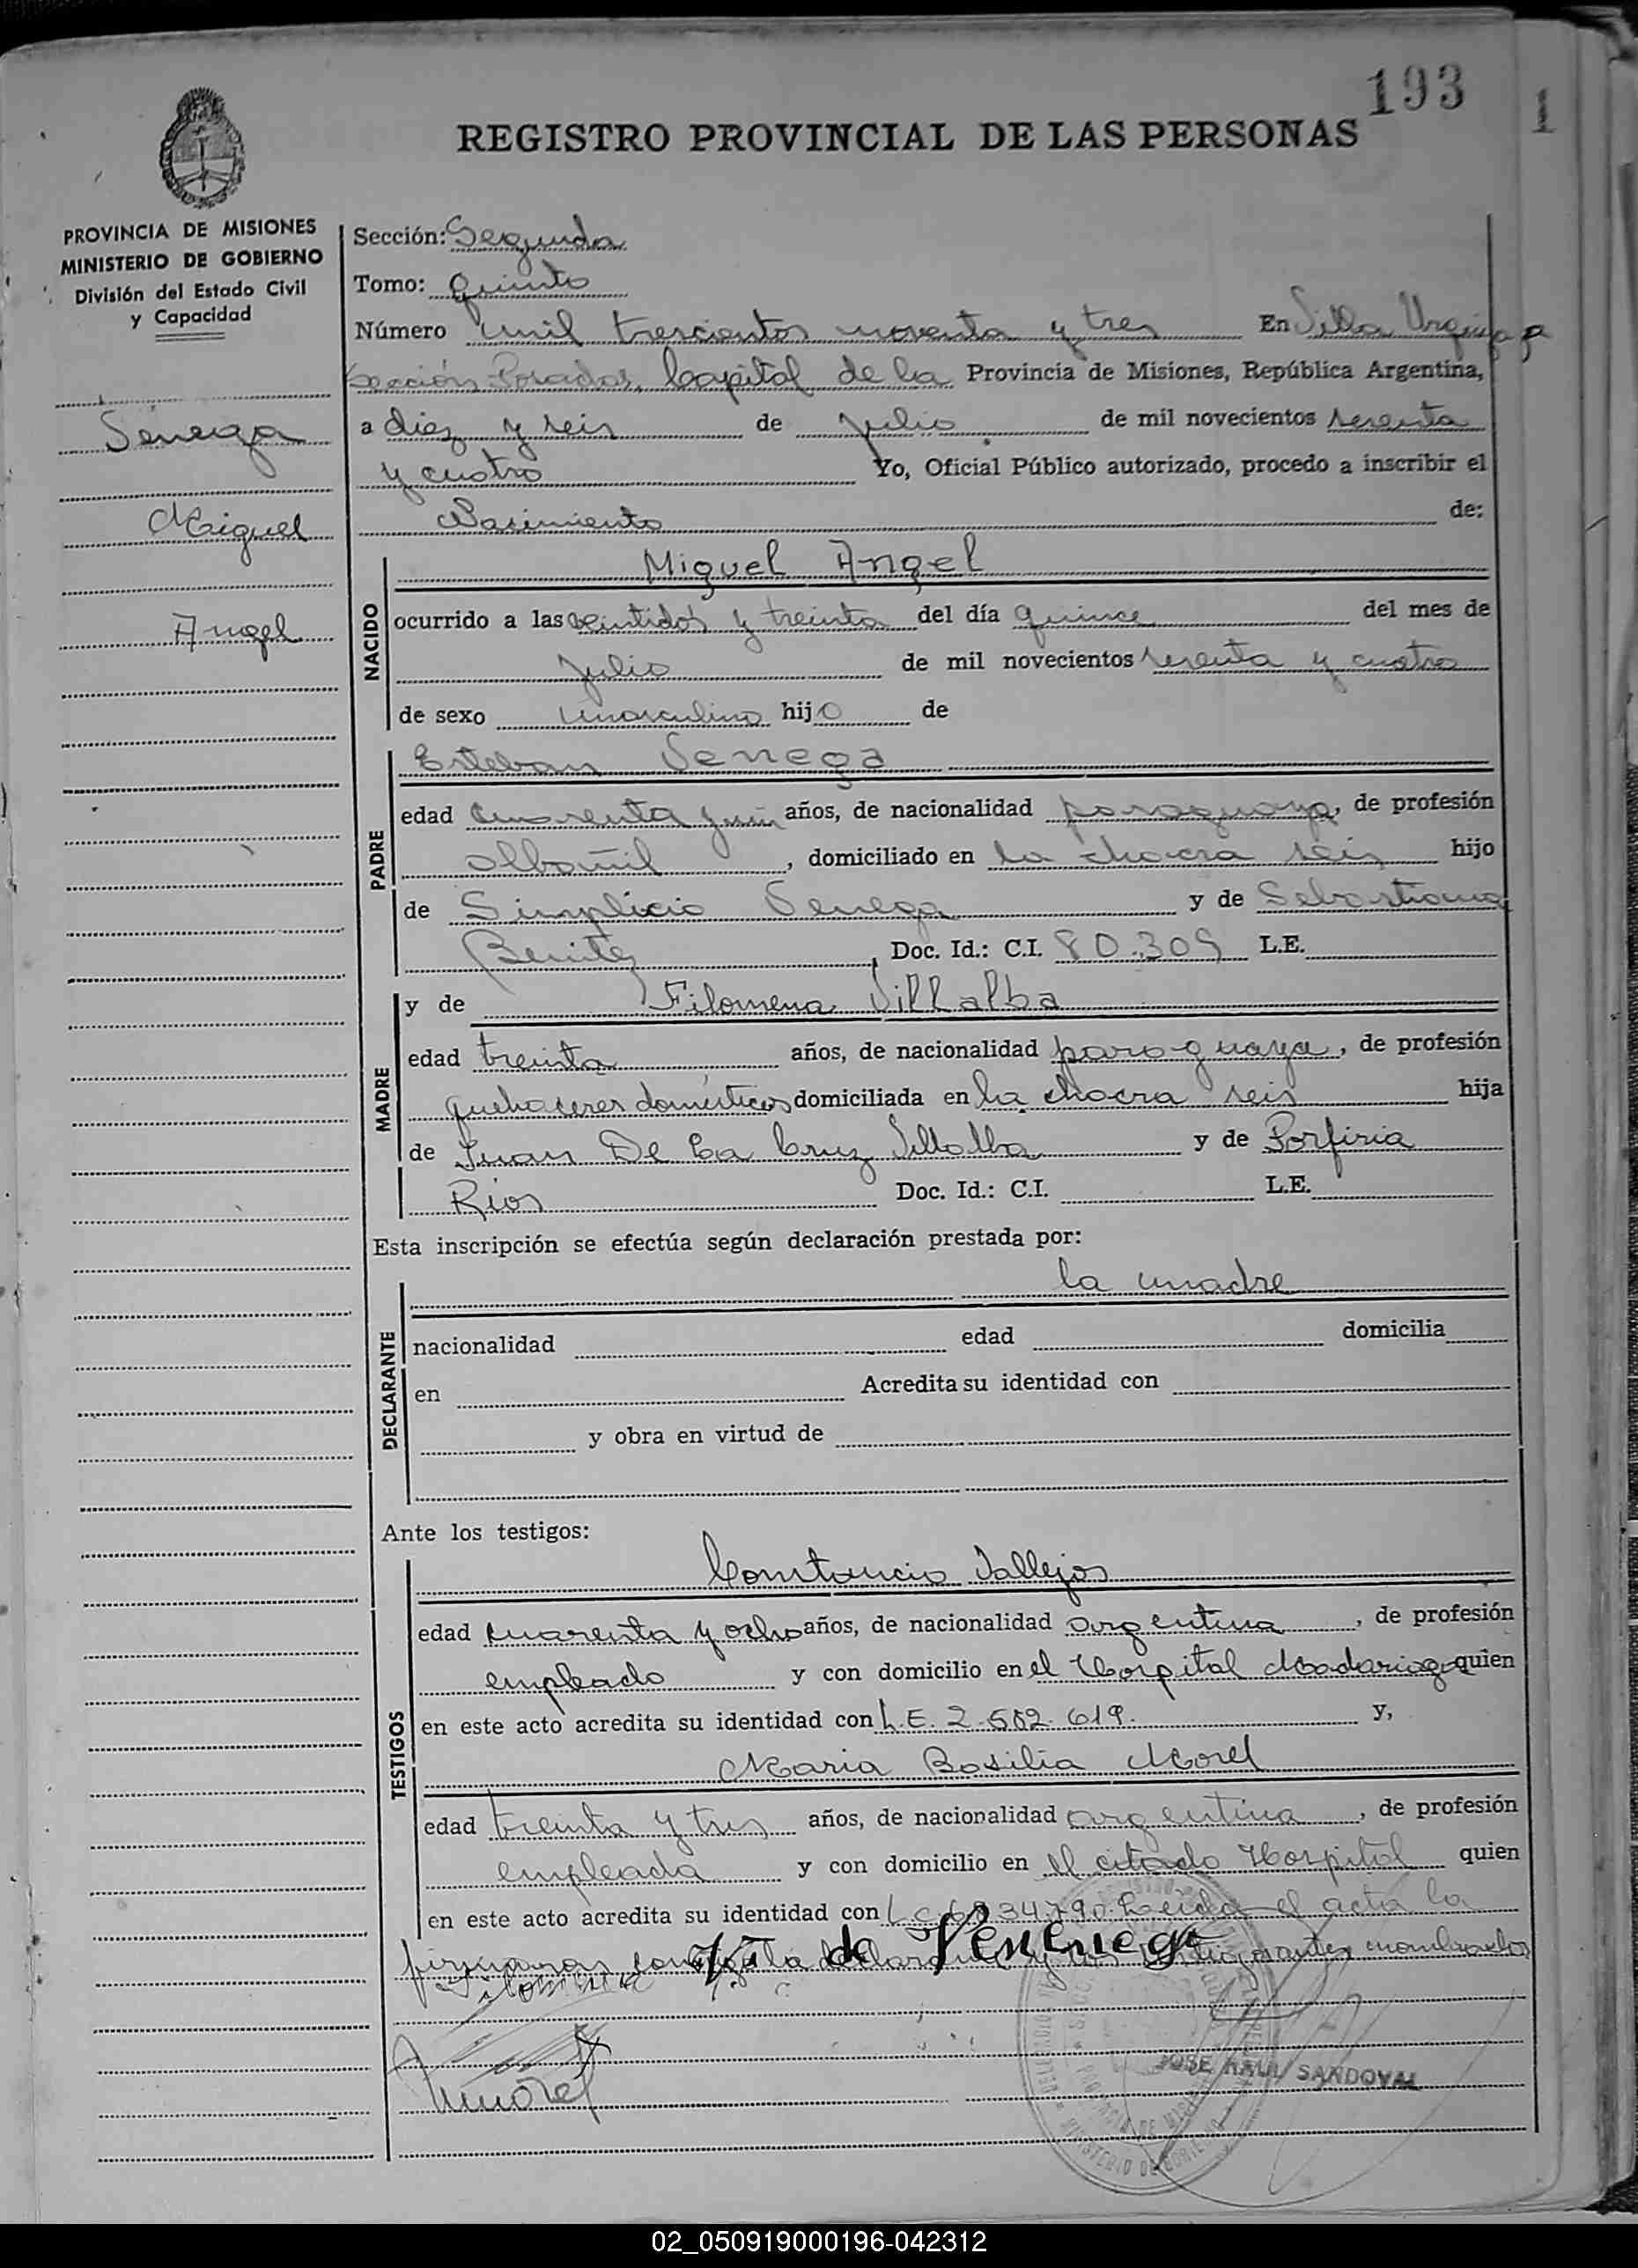 193
1
REGISTRO PROVINCIAL DE LAS PERSONAS
PROVINCIA DE MISIONES
MINISTERIO DE GOBIERNO
División del Estado Civil
y Capacidad
Senega
Miguel
Angel
Sección: Segunda
Tomo: Quinto
Número mil trescientos noventa y tres En Villa Urquiza
Sección Posadas, Capital de la Provincia de Misiones, República Argentina,
a diez y seis de Julio de mil novecientos sesenta
y cuatro Yo, Oficial Público autorizado, procedo a inscribir el
Nacimiento de:
NACIDO
Miguel Angel
ocurrido a las veintidós y treinta del día quince del mes de
Julio de mil novecientos sesenta y cuatro
de sexo masculino hijo de
PADRE
Esteban Senega
edad cuarenta y un años, de nacionalidad paraguaya, de profesión
albañil, domiciliado en la chacra seis hijo
de Simplicio Senega y de Sebastiana
Benitez, Doc. Id.: C.I. 80.309 L.E.
MADRE
y de Filomena Villalba
edad treinta años, de nacionalidad paraguaya, de profesión
quehaceres domésticos domiciliada en la chacra seis hija
de Juan De La Cruz Villalba y de Porfiria
Rios Doc. Id.: C.I. L.E.
Esta inscripción se efectúa según declaración prestada por:
DECLARANTE
la madre
nacionalidad edad domicilia
en Acredita su identidad con
y obra en virtud de
Ante los testigos:
TESTIGOS
Constancio Vallejos
edad cuarenta y ocho años, de nacionalidad argentina, de profesión
empleado y con domicilio en el Hospital Madariaga quien
en este acto acredita su identidad con L.E. 2.582.619. y,
Maria Basilia Morel
edad treinta y tres años, de nacionalidad argentina, de profesión
empleada y con domicilio en el citado Hospital quien
en este acto acredita su identidad con L.C. Leida el acta la
firmaron la y los nombrados
Filomena V. de Seneega
JOSE RAUL SANDOVAL
02_050919000196-042312